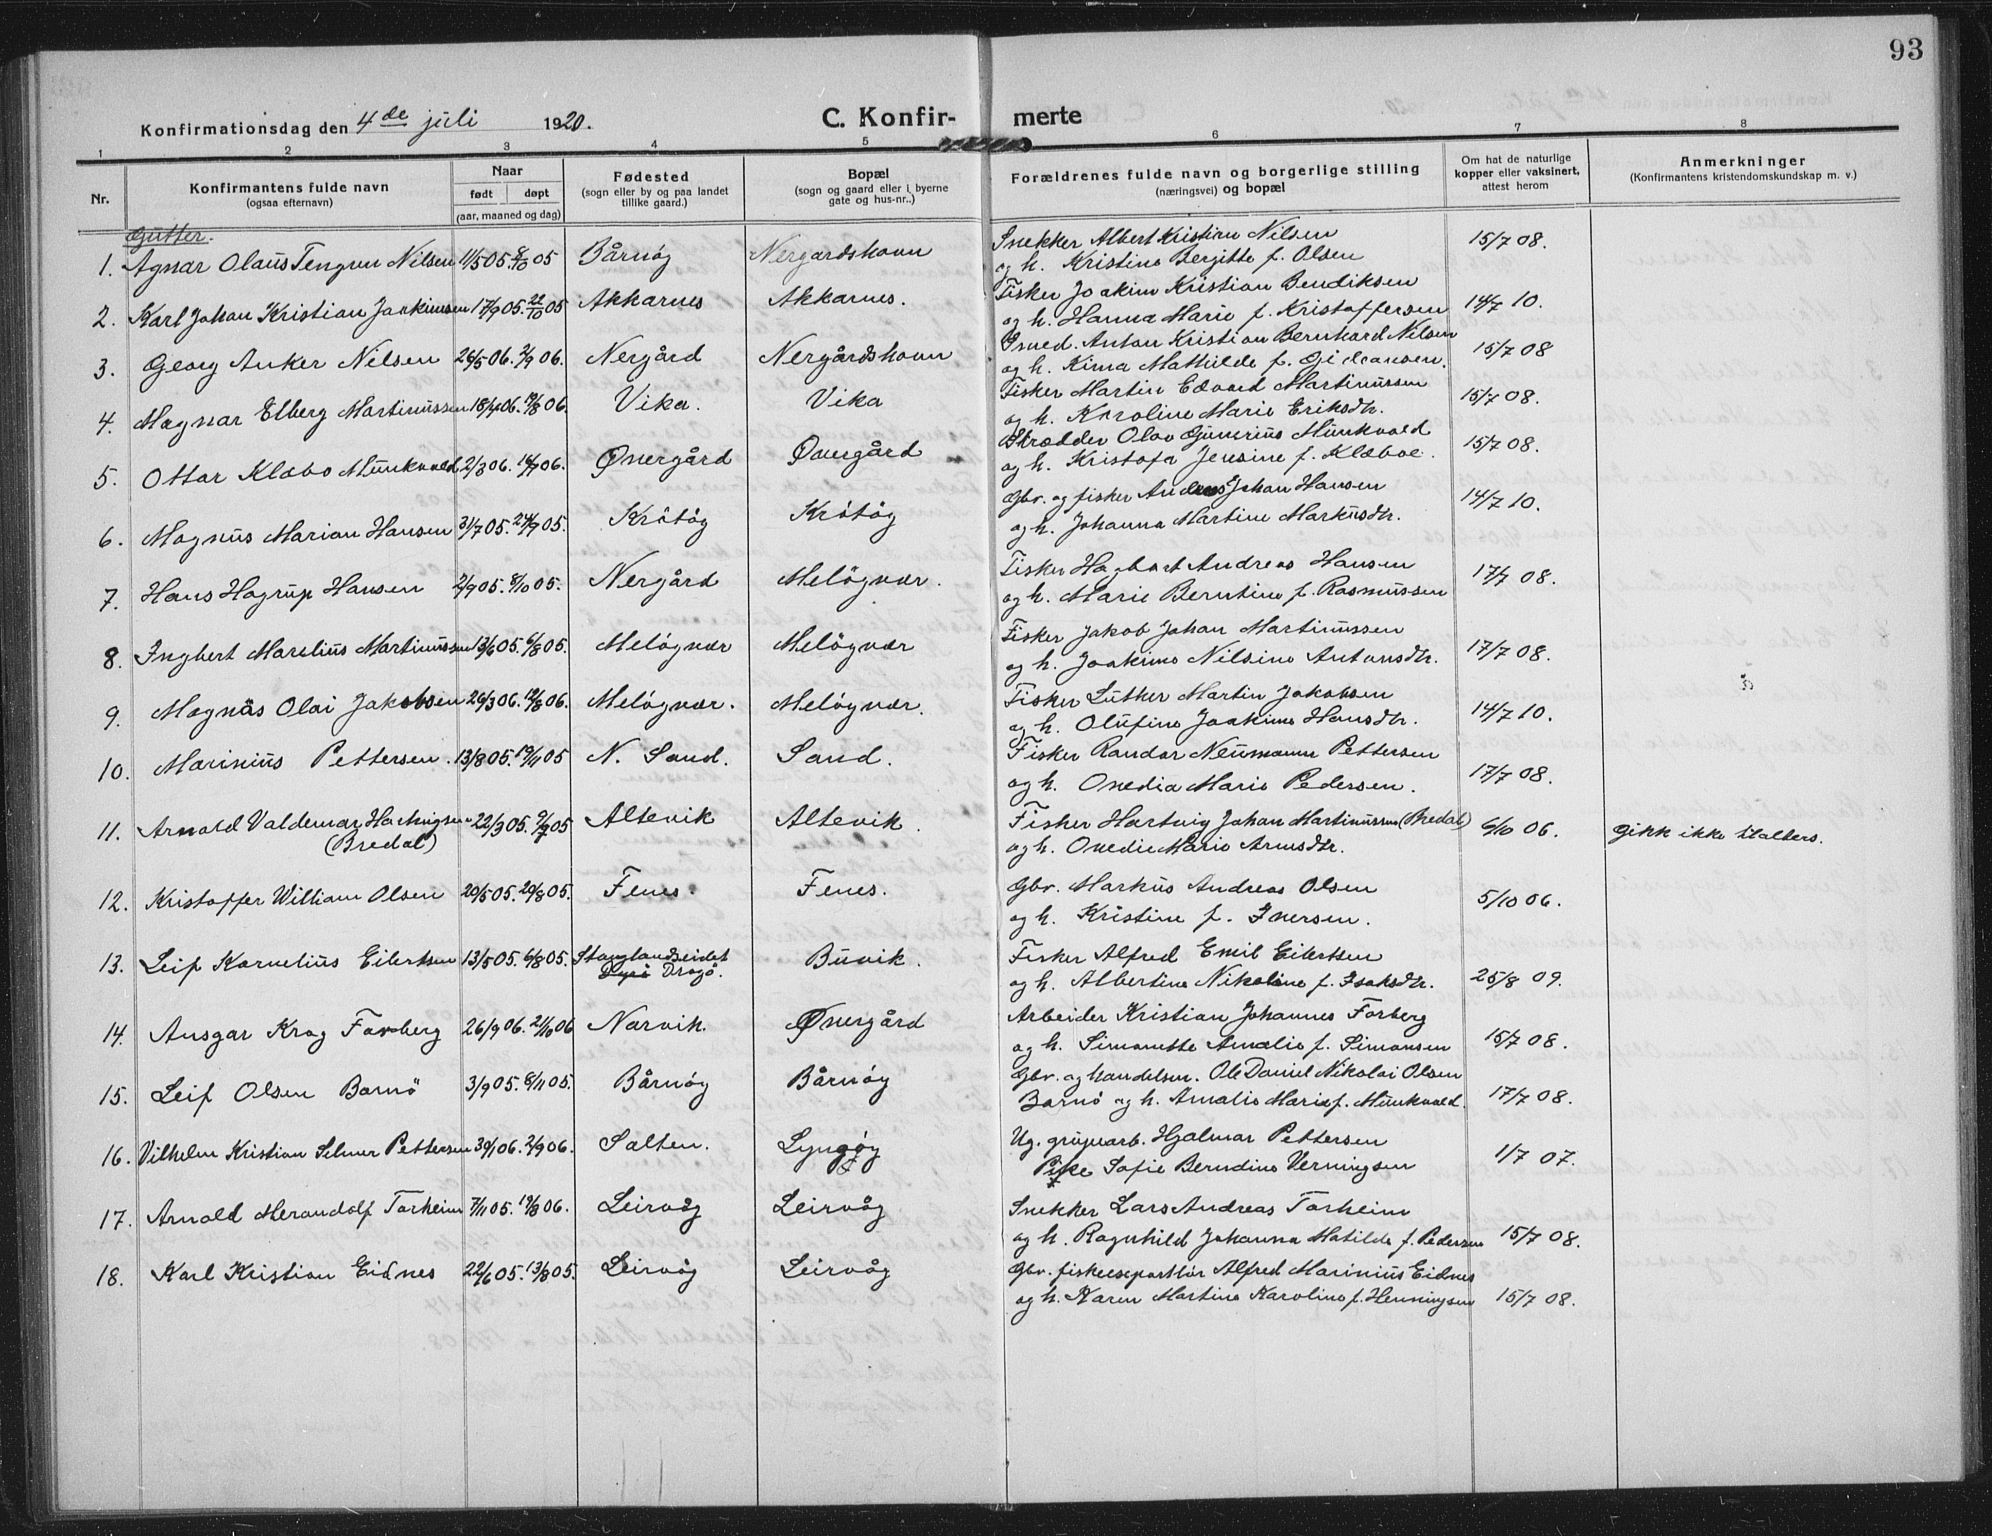 93
Konfirmationsdag den 4de juli 1920.
C. Konfirmerte
1 2 3 4 5 6 7 8
Nr.
Konfirmantens fulde navn
(ogsaa efternavn)
Naar
født døpt
(aar, maaned og dag)
Fødested
(sogn eller by og paa landet
tillike gaard.)
Bopæl
(sogn og gaard eller i byerne
gate og hus-nr.)
Forældrenes fulde navn og borgerlige stilling
(næringsvei) og bopæl
Om hat de naturlige
kopper eller vaksinert,
attest herom
Anmerkninger
(Konfirmantens kristendomskundskap m. v.)
Gutter.
1. Agnar Olaus Tengrun Nilsen 11/5 05. 8/10 05 Bårnøy Nergårdshavn Snekker Albert Kristian Nilsen 15/7 08.
og h. Kristine Bergitte f. Olsen
2. Karl Johan Kristian Joakimsen 17/9 05. 22/10 05 Akkarnes Akkarnes. Fisker Joakim Kristian Bendiksen
og h. Hanna Marie f. Kristoffersen 14/7 10.
3. Georg Anker Nilsen 26/5 06. 2/9 06. Nergård Nergårdshavn Smed. Anton Kristian Bernhard Nilsen 15/7 08
og h. Kima Mathilde f.
4. Magnar Elberg Martinussen 18/4 06. 19/8 06. Vika. Vika Fisker Martin Edvard Martinussen 15/7 08.
og h. Karoline Marie Eriksdtr.
5. Ottar Klæbo Munkvold 2/3 06. 06. Øvergård Øvergård Skrædder Olav Gunerius Munkvold 15/7 08.
og h. Kristofa Jensine f. Klæboe.
6. Magnus Marian Hansen 31/7 05. 24/9 05. Krøtøy Krøtøy Gbr. og fisker Andreas Johan Hansen 14/7 10.
og h. Johanna Martine Markusdtr.
7. Hans Hagrup Hansen 2/9 05. 8/10 05. Nergård Meløyvær. Fisker Hagbart Andreas Hansen 17/7 08.
og h. Marie Berntine f. Rasmussen
8. Ingbert Marelius Martinussen 13/6 05. 6/8 05. Meløyvær Meløyvær Fisker Jakob Johan Martinussen
og h. Joakime Nilsine Antonsdtr. 17/7 08.
9. Magnås Olai Jakobsen 26/3 06. 19/8 06. Meløyvær. Meløyvær. Fisker Luther Martin Jakobsen
og h. Olufine Joakime Hansdtr. 14/7 10.
10. Marinius Pettersen. 13/8 05. 19/11 05 N. Sand. Sand. Fisker Randor Neumann Pettersen
og h. Ovedia Marie Pedersen. 17/7 08.
11. Arnold Valdemar Hartvigsen 22/3 05. 9/7 05 Altevik Altevik. Fisker Hartvig Johan Martinussen (Bredal) 6/10 06. gikk ikke til alters.
(Bredal) og h. Ovedie Marie Arnsdtr.
12. Kristoffer William Olsen 20/5 05. 20/8 05. Fenes. Fenes. Gbr. Markus Andreas Olsen 5/10 06.
og h. Kristine f. Iversen.
13. Leif Kornelius Eilertsen 13/5 05. 6/8 05. Stanglandseidet Buvik. Fisker Alfred Emil Eilertsen
Dyrø Drøjö. og h. Albertine Nikoline f. Isaksdtr. 25/8 09.
14. Ansgar Krog Forberg 26/9 06. 21/10 06 Narvik. Øvergård Arbeider Kristian Johannes Forberg
og h. Simonette Amalie f. Simonsen 15/7 08.
15. Leif Olsen Barnö 3/9 05. 8/11 05. Bårnøy Bårnøy Gbr. og handelsm. Ole Daniel Nikolai Olsen
Barnö og h. Amalie Marie f. Munkvold. 17/7 08.
16. Vilhelm Kristian Selmer Pettersen 30/1 06. 2/9 06. Salten. Lyngøy Ug. grujearb. Hjalmar Pettersen
Pike Sofie Berndine Verningsen 1/7 07.
17. Arnold Merandolf Torheim 7/11 05. 19/8 06. Leirvåg Leirvåg Snekker Lars Andreas Torheim
og h. Ragnhild Johanna Matilde f. Pedersen 15/7 08.
18. Karl Kristian Eidnes 22/6 05. 13/8 05. Leirvåg Leirvåg Gbr. fiskeexportør Alfred Marinius Eidnes
og h. Karen Martine Karoline f. Henningsen 15/7 08.